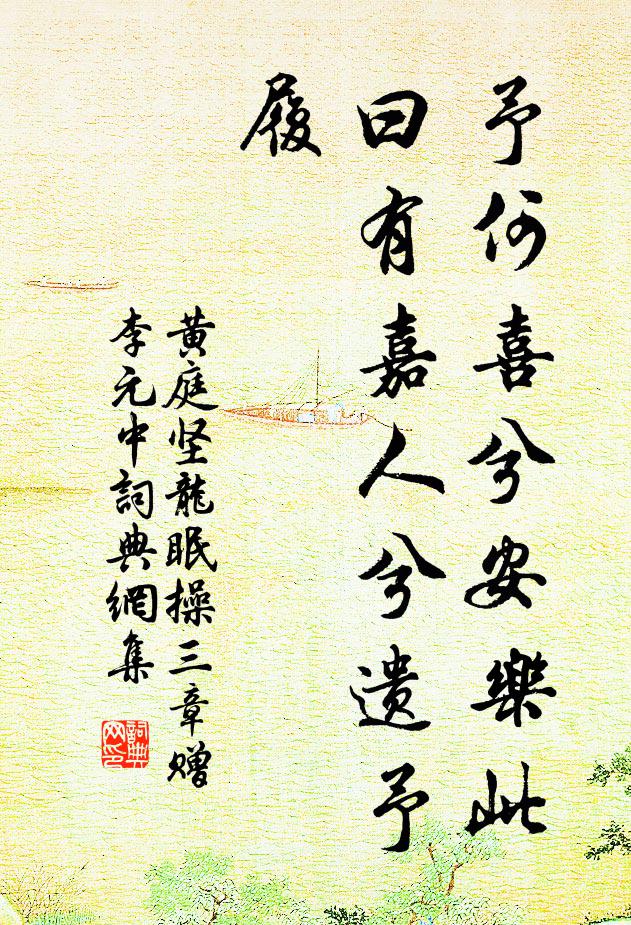 予何喜兮安樂此
曰有嘉人兮遗予
履
黄庭坚龍眠操三章赠
李元中詞典網集
詞典网印